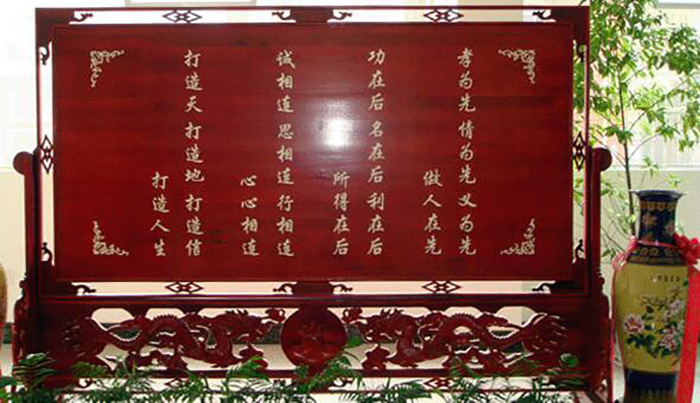 孝为先情为先义为先
做人在先
功在后名在后利在后
所得在后
诚相连思相连行相连
心心相连
打造天打造地打造信
打造人生